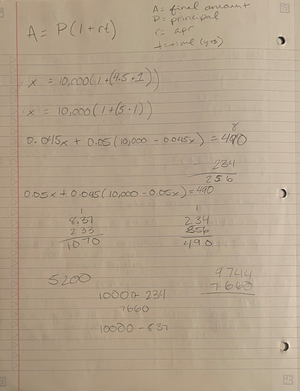 A = final amount
P = principal
A = P(1+rt)
r = apr
t = time (yrs)
x = 10,000(1+(4.5·1))
x = 10,000(1+(5·1))
0.045x + 0.05(10,000 - 0.045x) = 490
234
256
0.05x + 0.045(10,000 - 0.05x) = 490
837
234
233
256
1070
490
5200
9744
10000 - 234
7663
7660
10000 - 837